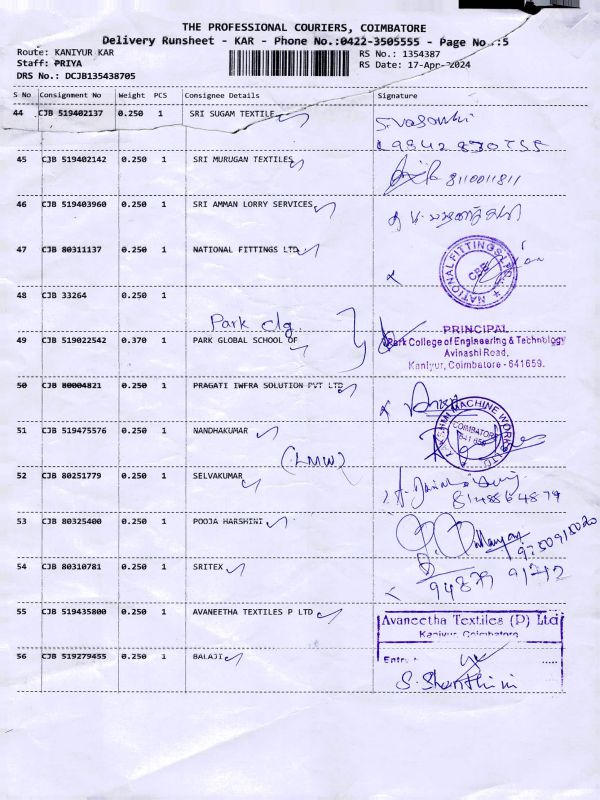 THE PROFESSIONAL COURIERS, COIMBATORE
Delivery Runsheet - KAR - Phone No.:0422-3505555 - Page No.:5
Route: KANIYUR KAR
RS No.: 1354387
Staff: PRIYA
RS Date: 17-Apr-2024
DRS No.: DCJB135438705
S No Consignment No Weight PCS Consignee Details Signature
44 CJB 519402137 0.250 1 SRI SUGAM TEXTILE
S.Vasanthi
45 CJB 519402142 0.250 1 SRI MURUGAN TEXTILES
8110011811
46 CJB 519403960 0.250 1 SRI AMMAN LORRY SERVICES
47 CJB 80311137 0.250 1 NATIONAL FITTINGS LTD
NATIONAL FITTINGS LTD
CBE
48 CJB 33264 0.250 1
Park clg.
PRINCIPAL
49 CJB 519022542 0.370 1 PARK GLOBAL SCHOOL OF
Park College of Engineering & Technology
Avinashi Road,
Kaniyur, Coimbatore - 641659.
50 CJB 80004821 0.250 1 PRAGATI IWFRA SOLUTION PVT LTD
51 CJB 519475576 0.250 1 NANDHAKUMAR
MACHINE WORKS
COIMBATORE
(LMW)
52 CJB 80251779 0.250 1 SELVAKUMAR
8148864879
53 CJB 80325400 0.250 1 POOJA HARSHINI
9750915020
54 CJB 80310781 0.250 1 SRITEX
94879 91212
55 CJB 519435800 0.250 1 AVANEETHA TEXTILES P LTD
Avaneetha Textiles (P) Ltd
Kaniyur, Coimbatore
56 CJB 519279455 0.250 1 BALAJI
S. Shanthini